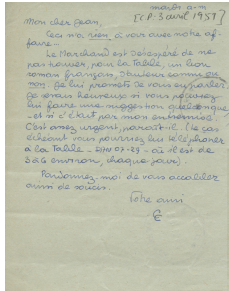 mardi a-m
[C.P. 3 avril 1951]
Mon cher Jean,
Ceci n'a rien à voir avec notre af-
faire...
Le Marchand est désespéré de ne
pas trouver, pour la Table, un bon
roman français, d'auteur connu ou
non. Je lui promets de vous en parler.
Je serais heureux si vous pouviez
lui faire une suggestion quelconque
- et si c'était par mon entremise.
C'est assez urgent, paraît-il. (Le cas
échéant vous pourriez lui téléphoner
à la Table - 07-29 - où il est de
3 à 6 environ, chaque jour)
Pardonnez-moi de vous accabler
ainsi de soucis.
Votre ami